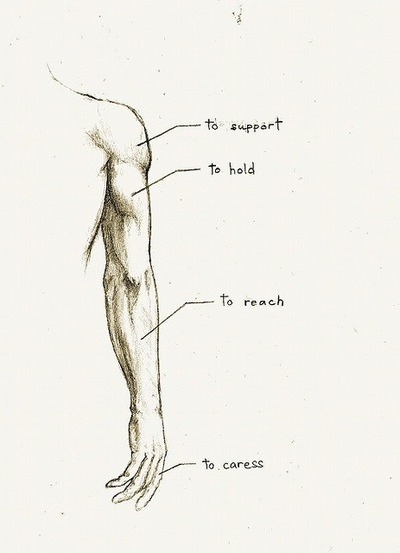 to support
to hold
to reach
to caress